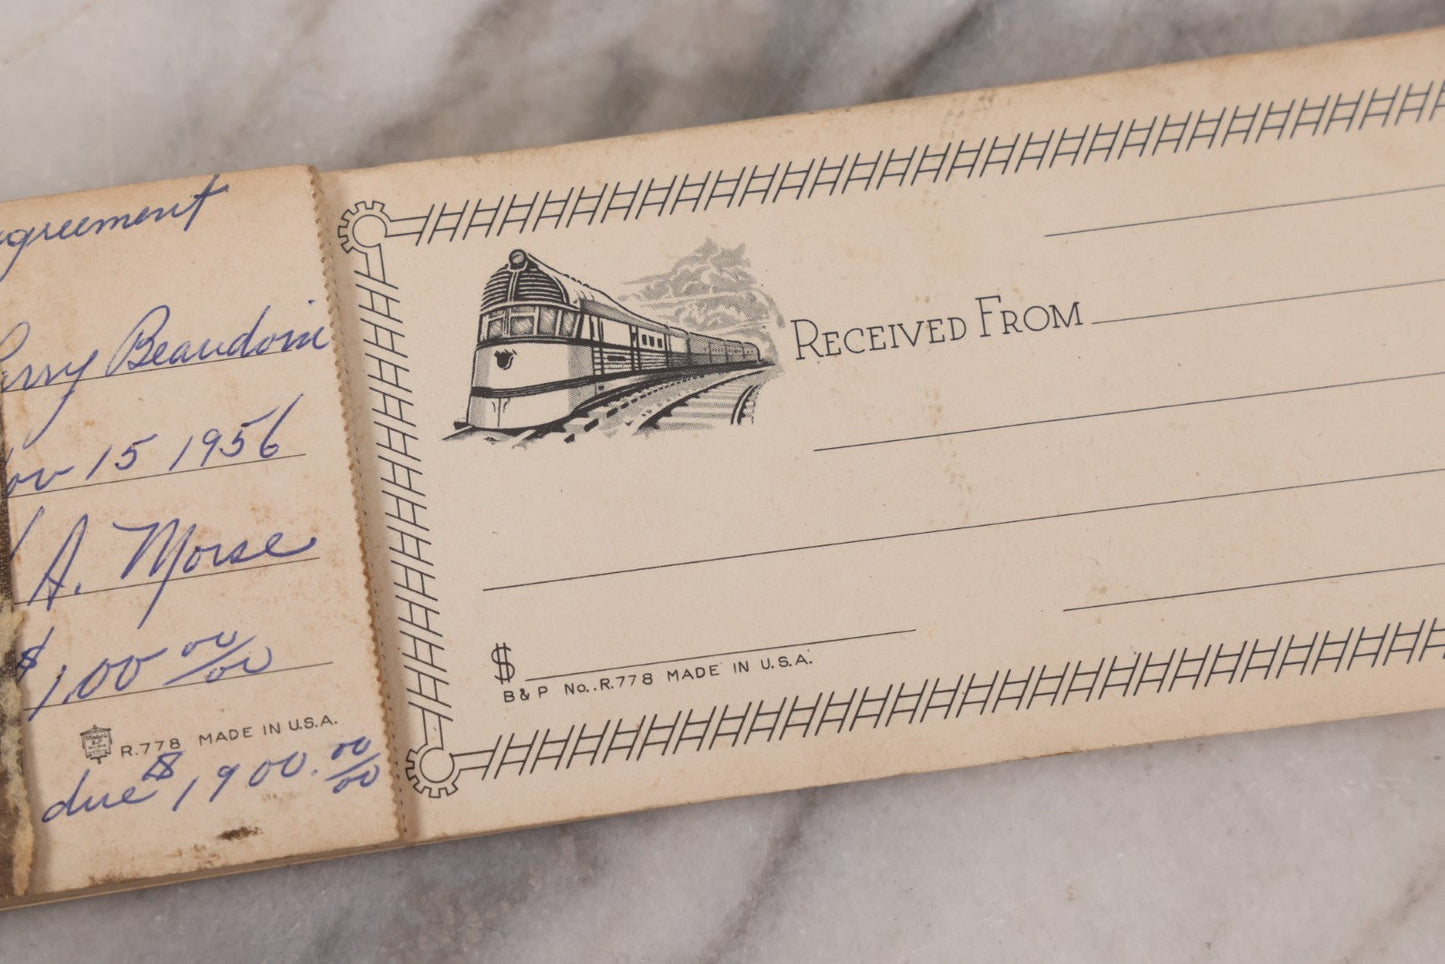 agreement
Larry Beaudoin
Nov 15 1956
A. Morse
$ 1.00 00/00
R.778 MADE IN U.S.A.
due $ 1,900.00/00
RECEIVED FROM
$
B & P No. R.778 MADE IN U.S.A.